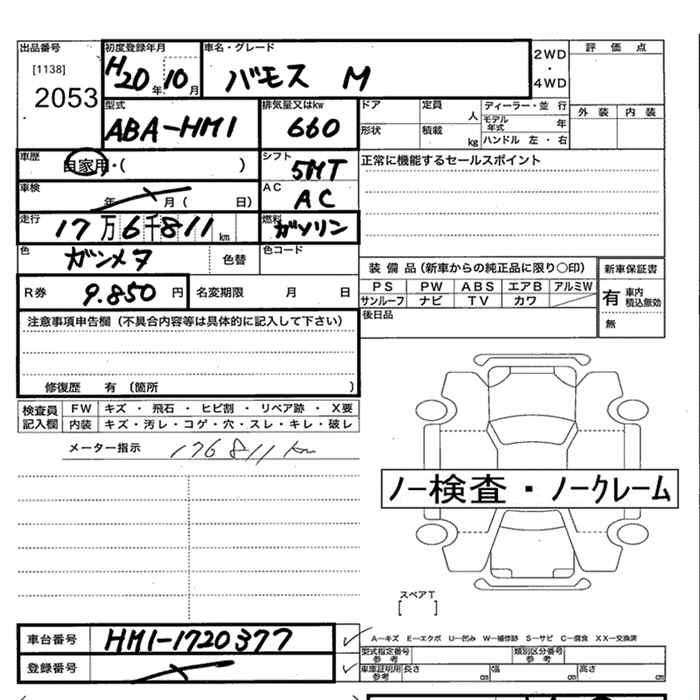 出品番号
[1138]
2053
初度登録年月
H20年 10月
車名・グレード
バモス M
2WD
・
4WD
評価点
外装 内装
型式
ABA-HM1
排気量又はkw
660
ドア
定員 人
ディーラー・並行
モデル年式 年
形状
積載 kg
ハンドル 左・右
車歴
自家用・( )
シフト
5MT
正常に機能するセールスポイント
車検
年 月( 日)
AC
AC
走行
17万6千811km
燃料
ガソリン
色
ガンメタ
色替
色コード
R券 9.850円
名変期限 月 日
装備品(新車からの純正品に限り〇印)
PS PW ABS エアB アルミW
サンルーフ ナビ TV カワ
新車保証書
有 車内積込無効
無
後日品
注意事項申告欄(不具合内容等は具体的に記入して下さい)
修復歴 有(箇所 )
検査員記入欄
FW キズ・飛石・ヒビ割・リペア跡・X要
内装 キズ・汚レ・コゲ・穴・スレ・キレ・破レ
メーター指示 176811km
ノー検査・ノークレーム
スペアT
[ ]
車台番号 HM1-1720377
登録番号
A―キズ E―エクボ U―凹み W―補修跡 S―サビ C―腐食 XX―交換済
型式指定番号 参考
類別区分番号 参考
車庫証明用 参考 長さ cm 幅 cm 高さ cm